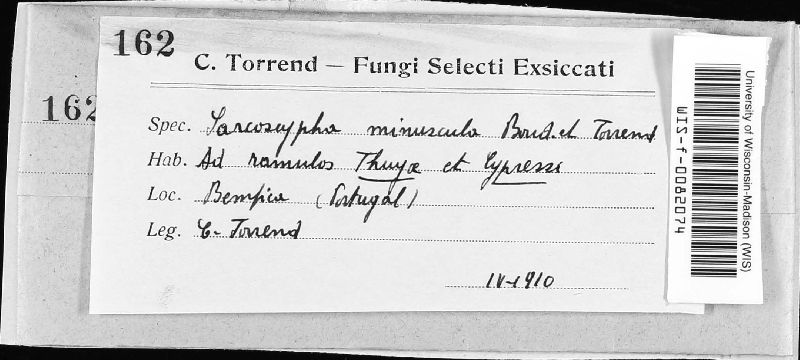 162
C. Torrend — Fungi Selecti Exsiccati
162
Spec. Sarcoscypha minuscula Boud. et Torrend
Hab. Ad ramulos Thuyæ et Cypressi
Loc. Bemfica (Portugal)
Leg. C. Torrend
IV-1910
University of Wisconsin-Madison (WIS)
WIS-f-0082074